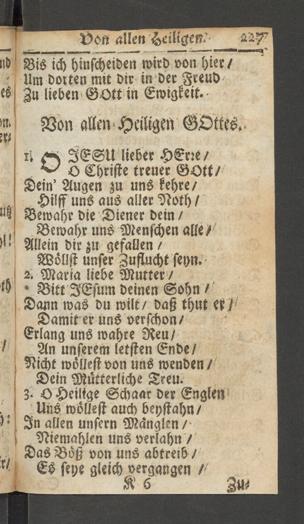 Von allen Heiligen. 227
Bis ich hinscheiden wird von hier/
Um dorten mit dir in der Freud
Zu lieben GOtt in Ewigkeit.
Von allen Heiligen GOttes.
1. O JESU lieber HErre/
O Christe treuer GOtt/
Dein' Augen zu uns kehre/
Hilff uns aus aller Noth/
Bewahr die Diener dein/
Bewahr uns Menschen alle/
Allein dir zu gefallen/
Wöllst unser Zuflucht seyn.
2. Maria liebe Mutter/
Bitt JEsum deinen Sohn/
Dann was du wilt/ daß thut er/
Damit er uns verschon/
Erlang uns wahre Reu/
An unserem letsten Ende/
Nicht wöllest von uns wenden/
Dein Mütterliche Treu.
3. O Heilige Schaar der Englen
Uns wöllest auch beystahn/
In allen unsern Mänglen/
Niemahlen uns verlahn/
Das Böß von uns abtreib/
Es seye gleich vergangen/
K 6 Zu-